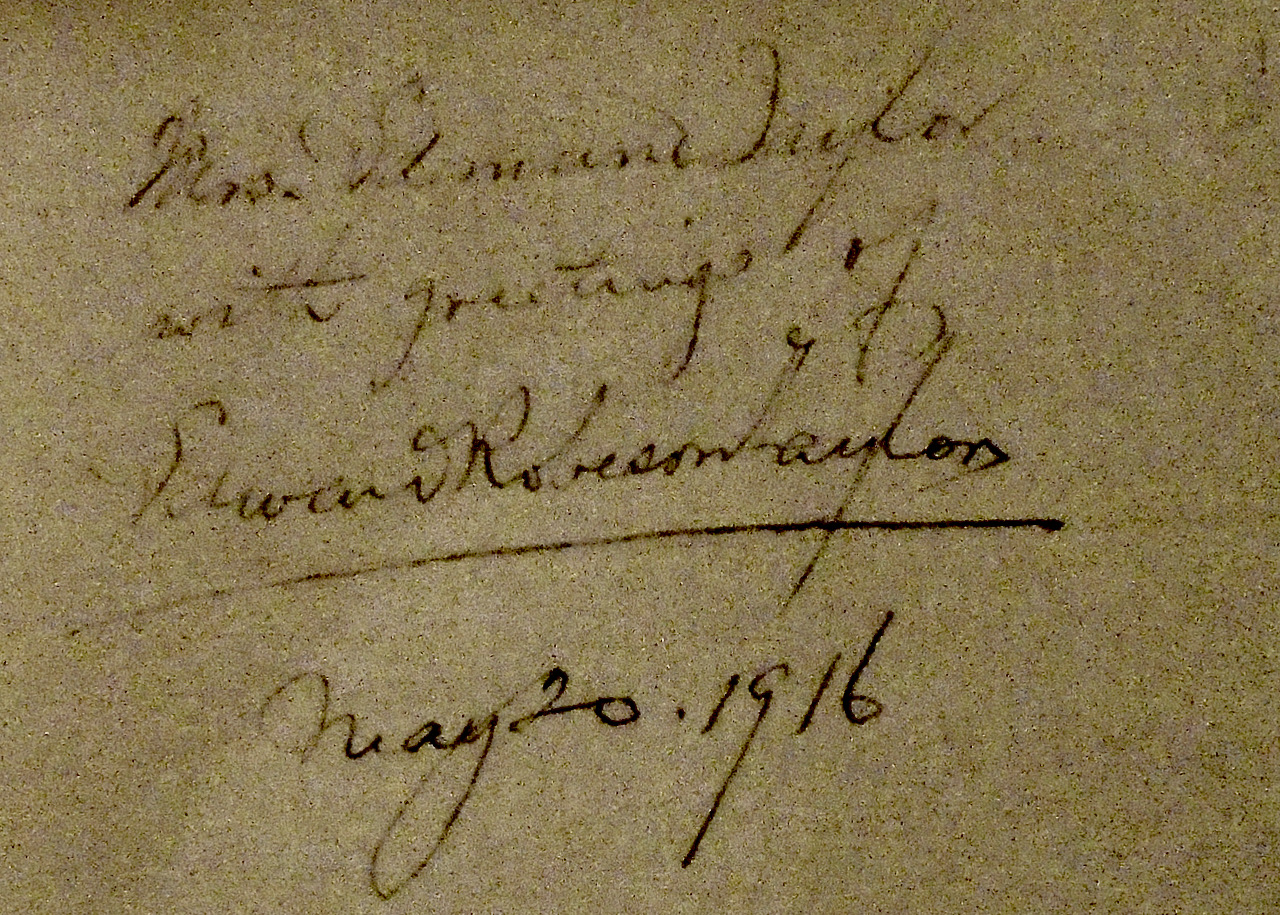 Mrs. Edmund Taylor
with greetings of
Edward Robeson Taylor
May 20. 1916